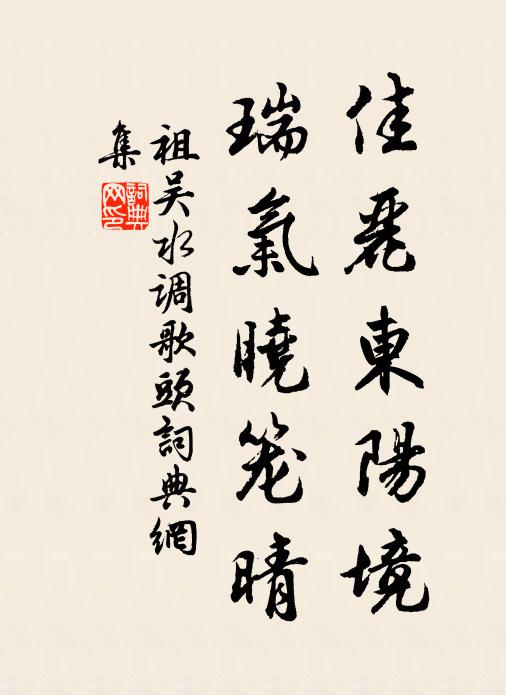 佳麗東陽境
瑞氣曉笼晴
祖吴水调歌頭詞典網
集
詞典网印